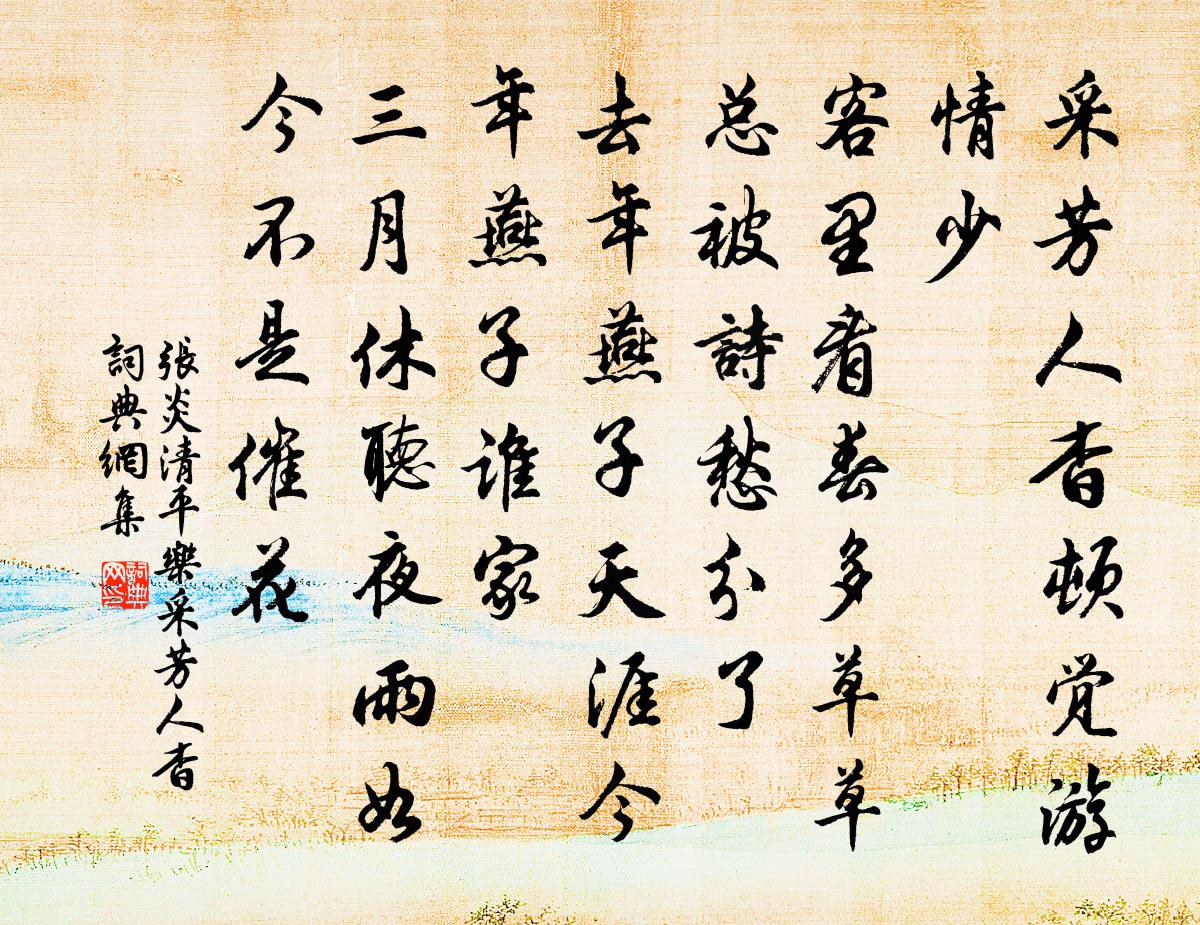 采芳人杳顿觉游
情少
客里看春多草草
总被詩愁分了
去年燕子天涯今
年燕子谁家
三月休聽夜雨如
今不是催花
張炎清平樂采芳人杳
詞典網集